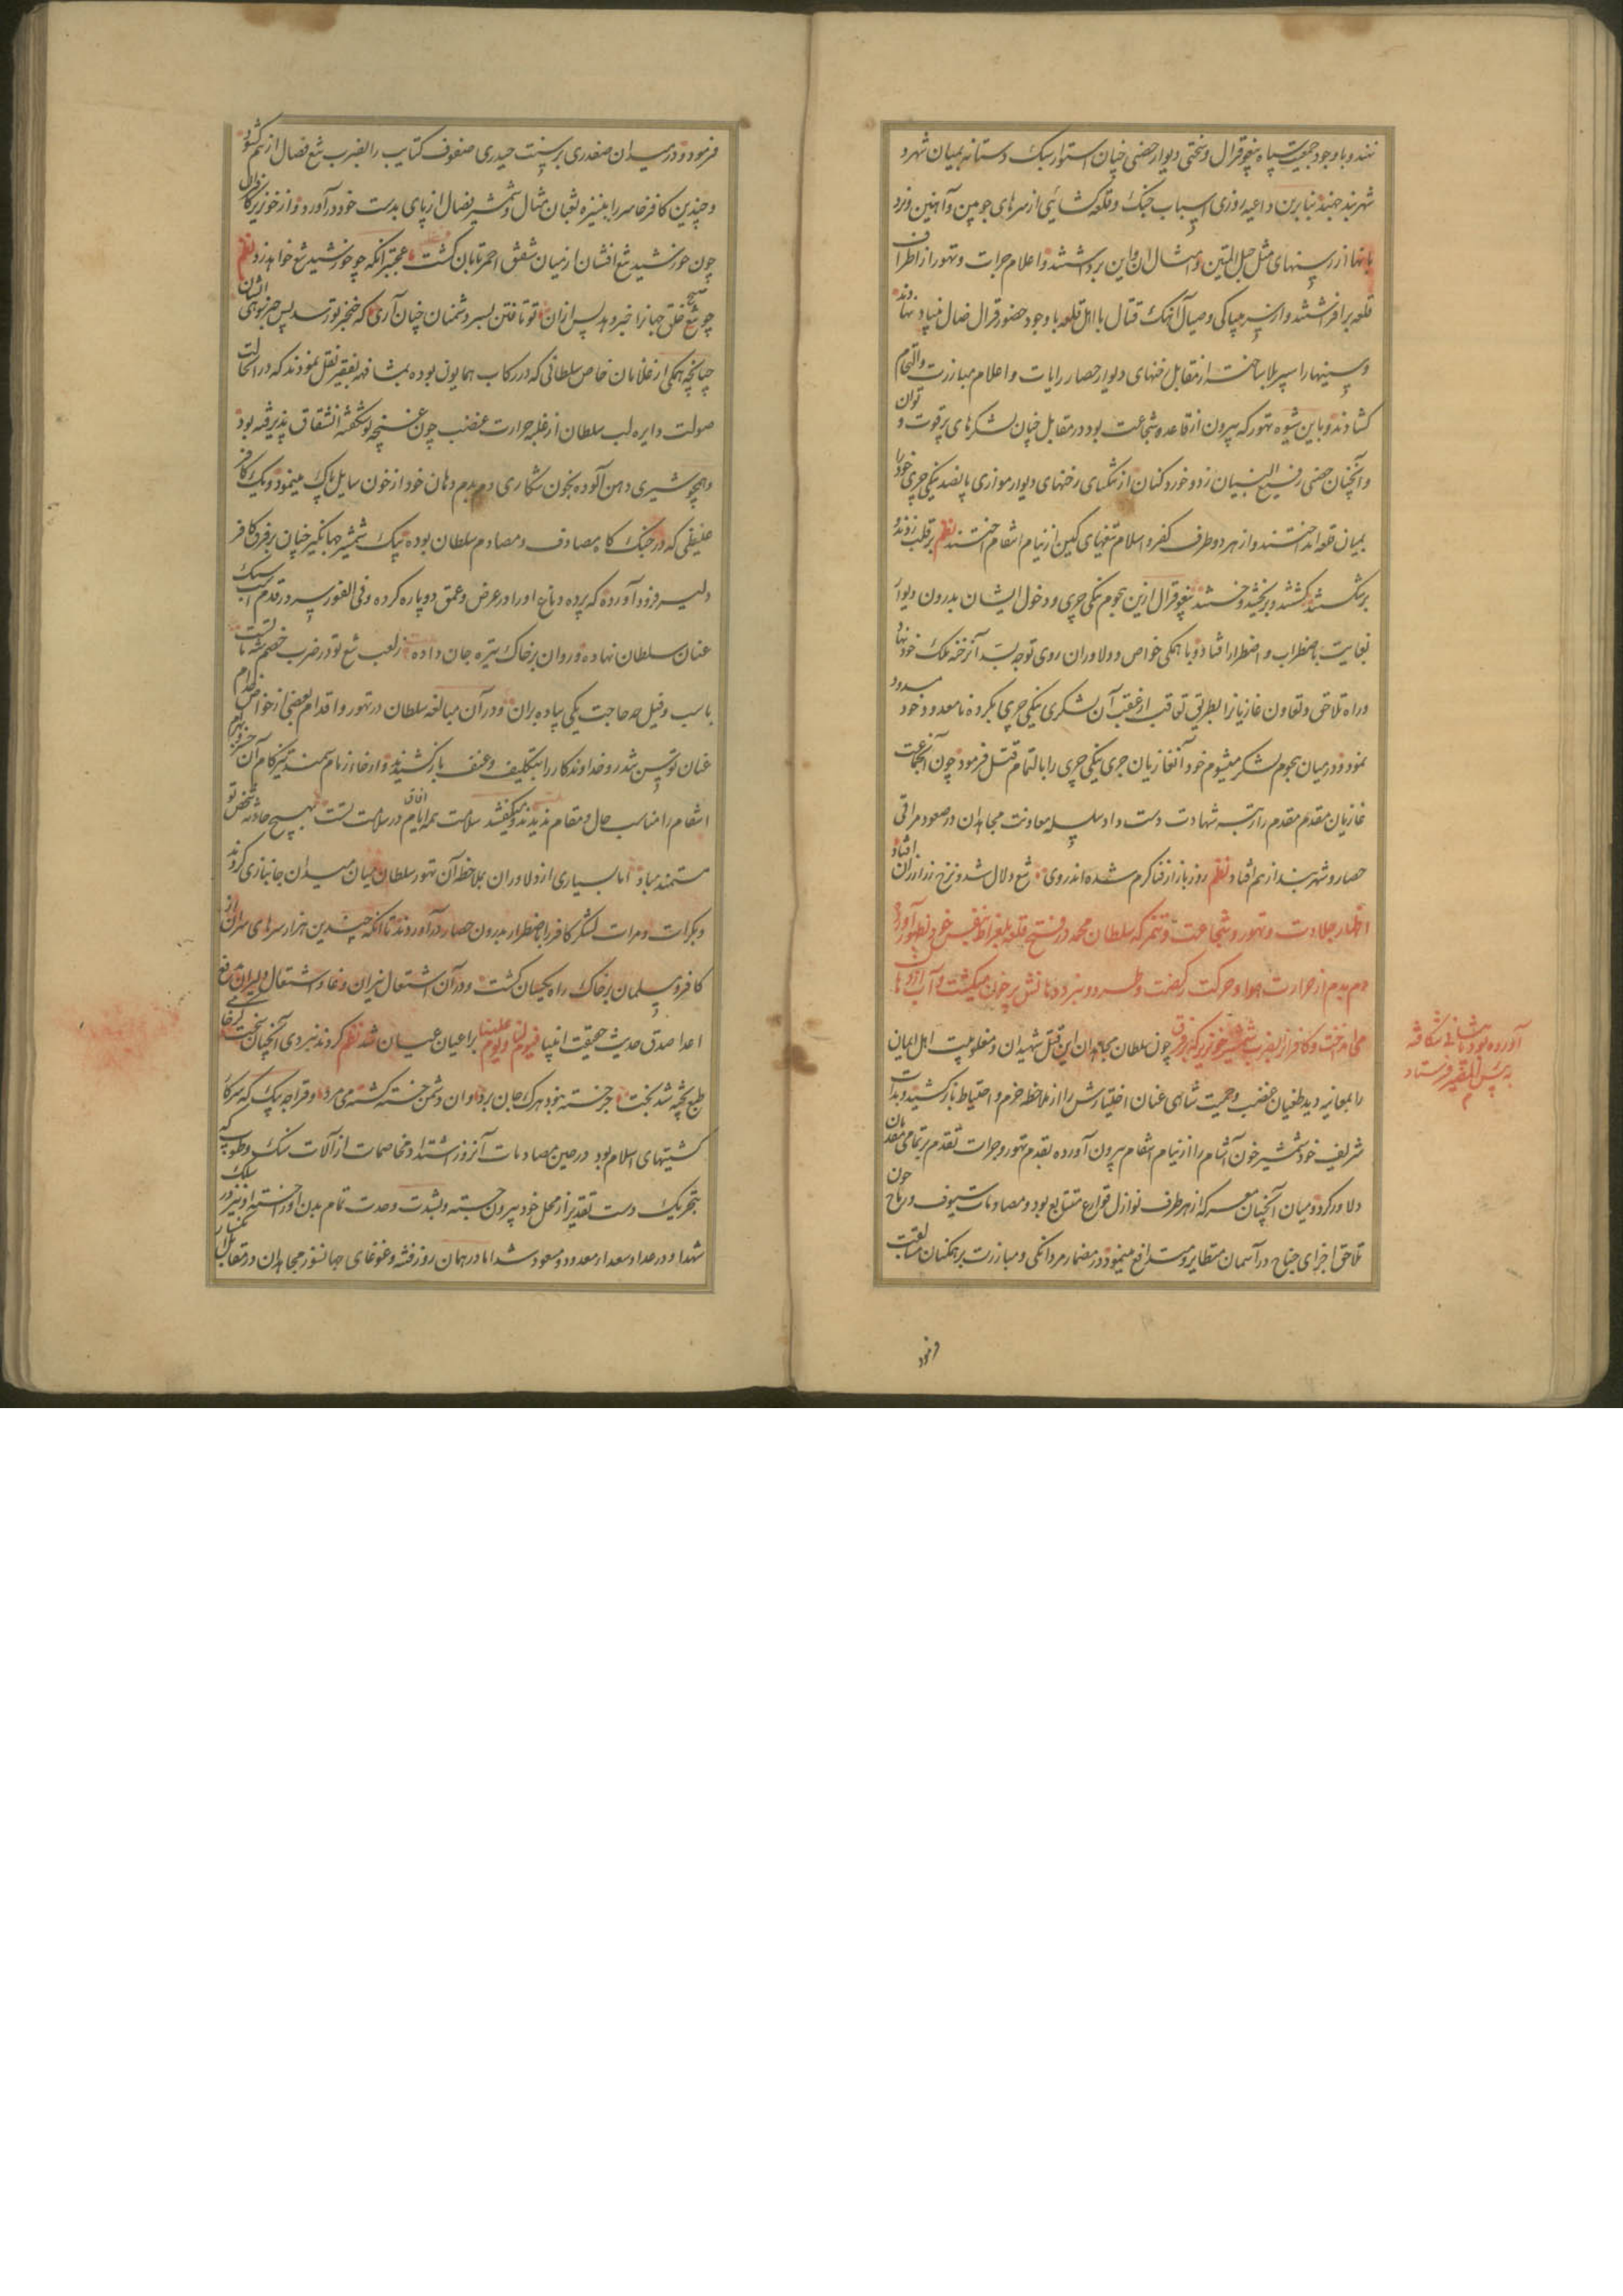 نهند و با وجود جمعیت سپاه ینغو قرال و سختی دیوار حصنی چنان استوار سبک دستانه بمیان شهر و
شهربند جهند بنابرین داعیه روزی اسباب جنک و قلعه کشایی از سرهای چوبین و آهنین و نرد
بانها از ریسنهای مثل حبل المتین و امثال ان واین برداشتند و اعلام جرات و تهور از اطراف
قلعه برافراشتند و از سر بیباکی و صیال آهنک قتال با اهل قلعه با وجود حضور قرال ضال بنیاد نهادند
و سینهارا سپر بلا ساخته از مقابل رخنهای دیوار حصار رایات و اعلام مبارزت و التحام
کشادند و باین شیوه تهور که بیرون از قاعده شجاعت بود در مقابل چنان لشکرهای پر قوت و توان
و آنچنان حصنی رفیع البنیان زد و خورد کنان از تنکنای رخنهای دیوار موازی پانصد ینکی چری خود را
بمیان قلعه انداختند و از هر دو طرف کفر و اسلام تیغهای کین از نیام انتقام آختند نظم بر قلب زدند و
برشکستند کشتند و بریختند و خستند ینغو قرال ازین هجوم ینکی چری و دخول ایشان بدرون دیوار
بغایت باضطراب و اضطرار افتاد و با همکی خواص و دلاوران روی توجه بسد آن رخنه ملک خود نهاد
و راه تلاحق و تعاون غازیانرا بطریق تعاقب از عقب آن لشکری ینکی چری بکروه نامعدود خود مسدود
نمود و در میان هجوم لشکر مشیوم خود آن غازیان جری ینکی چری را بالتمام قتل فرمود چون آن جماعت
غازیان مقدم مقدم را رتبه شهادت دست داد سلسله معاونت مجاهدان در صعود مراقی
حصار و شهربند از هم افتاد نظم روز بازار فنا کرم شده اندر وی تیغ دلال شد و نرخ نزد ارزان افتاد
اظهار جلادت و تهور و شجاعت و تنمر که سلطان محمد در فتح قلعه بلغراط بنفس خود بظهور آورد و
دم بدم از حرارت هوا و حرکت رکضت و طرد و نبرد دهانش پر خون میکشت و آب از دهان
می انداخت و کافرانرا بضرب شمشیر خونریز که بر فرق چون سلطان مجاهدان این قتل شهیدان و مغلوبیت اهل ایمان
را بمعاینه دید طغیان غضب و حمیت شاهی عنان اختیارش را از ملاحظه حزم و احتیاط باز کشید و بذات
شریف خود شمشیر خون آشام را از نیام انتقام بیرون آورده بقدم تهور و جرات تقدم بر تمامی مقدمان
دلاور کرد و میان آنچنان معرکه از هر طرف نوازل قوارع متتابع بود و مصادمات سیوف و رماح چون
تلاحق اجزای جناح در آسمان متطایر و متدافع مینمود و در مضمار مردانکی و مبارزت بر همکنان مسابقت
فرمود
آورده بود تا پیشانی شکافته
به بئس المقر فرستاد
فرمود و در میدان صفدری بر سنت حیدری صفوف کتایب را بضرب تیغ فصال از هم کشود
و چندین کافر خاسر را بنیزه ثعبان مثال و شمشیر فصال از پای بدست خود در آورد و از خونریز کافران
چون خورشید تیغ افشان از میان شفق احمر تابان کشت عجبتر آنکه چو خورشید تیغ خواهد زد نظم
چو صبح تیغ خلق جهانرا خبر دهد پس ازان تو تافتن بسر دشمنان چنان آری که خنجر تو رسد پس خبر بدیشان
چنانچه همکی از غلامان خاص سلطانی که در رکاب همایون بوده بمشافهه بفقیر نقل نمودند که در ان حالت
صولت دایره لب سلطان از غلبه حرارت غضب چون غنچه نوشکفته انشقاق پذیرفته بود
و همچو شیری دهن آلوده بخون شکاری دم بدم دهان خود از خون سایل پاک مینمود و یک کافر
غلیظی که در جنک کاه مصادف و مصادم سلطان بوده بیک شمشیر جهانگیر چنان بر فرق کافر
دلیر فرود آورده که پرده دماغ او را در عرض و عمق دوپاره کرده و فی الفور سر در قدم سبک
عنان سلطان نهاده و روان بر خاک تیره جان داده ز لعب تیغ تو در ضرب خصم شه ماتست
باسب و فیل چه حاجت یکی پیاده بران و در آن مبالغه سلطان در تهور و اقدام بعضی از خواص خدام
عنان توسن تندرو خداوندکار را بتکلیف و عنف باز کشیدند و ارخاء زمام سمند تیزکام آن
انتقام را مناسب حال و مقام ندیدند و میکفتند سلامت همه آفاق در سلامت تست بهیچ حادثه شخص تو
مستمند مباد اما بسیاری از دلاوران بملاحظه آن تهور سلطان میان میدان جانبازی کردند
و بکرات و مرات لشکر کافر را باضطرار بدرون حصار در آوردند تا آنکه چندین هزار سرهای سران از
کافر و مسلمان بر خاک راه یکسان کشت و در آن اشتعال نیران وغا و اشتغال دلیران بدفع
اعدا صدق حدیث حقیقت انبیا فیوم لنا و یوم علینا بر اعیان عیان شد نظم کردند نبردی آنچنان سخت کز خامی
طبع پخته شد بخت جز خسته نبود هر که جان برد وان دشمن خسته کشته می مرد و قراجه بیک که سرکار
کشتیهای اسلام بود در حین مصادمات آنروز اشتداد مخاصمات از آلات سنک و طوب که
بتحریک دست تقدیر از محل خود بیرون جسته و بشدت وحدت تمام بدن او را خسته او نیز در سلک
شهدا و در عداد سعداء معدود و مسعود شد اما در همان روز فتنه و غوغای جهانسوز مجاهدان در مقابل